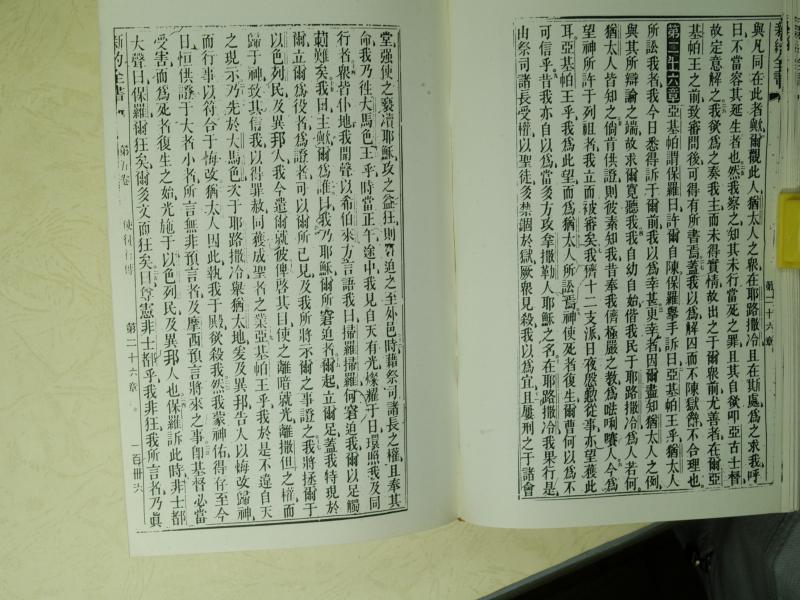 新約全書
第二十六章
與凡同在此者歟爾觀此人猶太人之衆在耶路撒冷且在斯處爲之求我呼
曰不當容其延生者也然我察之知其未行當死之罪且其自欲叩亞古士督
故定意解之我欲爲之奏我主而未得實情故出之于爾衆前尤善者在爾亞
基帕王之前致審問後可得有所書焉蓋我以爲解囚而不陳獄辭不合理也
第二十六章亞基帕謂保羅曰許爾自陳保羅擧手訴曰亞基帕王乎猶太人
所訟我者我今日悉得訴于爾前我以爲幸甚更幸者因爾盡知猶太人之例
與其所辯論之端故求爾寬聽我我自幼自始偕我民于耶路撒冷爲人若何
猶太人皆知之倘肯供證則彼素知我昔奉我儕極嚴之教爲𠵽唎嚷人今爲
望神所許于列祖者我立而被審矣我儕十二支派日夜慇懃從事亦望獲此
耳亞基帕王乎我爲此望而爲猶太人所訟焉神使死者復生爾曹何以爲不
可信乎昔我亦自以爲當多方攻拿撒勒人耶穌之名在耶路撒冷我果行是
由祭司諸長受權以聖徒多禁錮於獄厥衆見殺我以爲宜且屢刑之于諸會
堂强使之褻凟耶穌攻之益狂則窘迫之至外邑時藉祭司諸長之權且奉其
命我乃徃大馬色王乎時當正午途中我見自天有光燦耀于日環照我及同
行者衆皆仆地我聞聲以希伯來方言語我曰掃羅掃羅何窘迫我爾以足觸
刺難矣我曰主歟爾爲誰曰我乃耶穌爾所窘迫者爾起立爾足蓋我特現於
爾立爾爲役者爲證者可以爾所已見及我所將示爾之事證之我將拯爾于
以色列民及異邦人我今遣爾就彼俾啓其目使之離暗就光離撒但之權而
歸于神致其信我以得罪赦同獲成聖者之業亞基帕王乎我於是不違自天
之現示乃先於大馬色次于耶路撒冷舉猶太地爰及異邦告人以悔改歸神
而行事以符合于悔改猶太人因此執我于殿欲殺我然我蒙神佑得存至今
日恒供證于大者小者所言無非預言者及摩西預言將來之事卽基督必當
受害而爲死者復生之始光施于以色列民及異邦人也保羅訴此時非士都
大聲曰保羅爾狂矣爾多文而狂矣曰尊憲非士都乎我非狂我所言者乃眞
新約全書
第五卷
使徒行傳
第二十六章
一百卅六